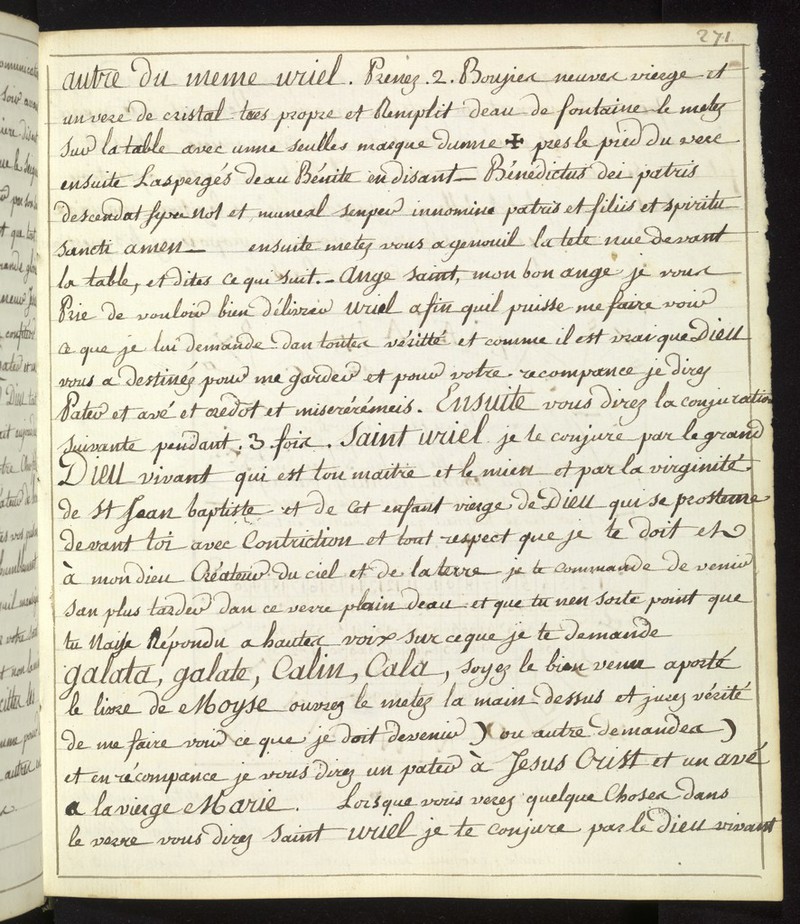 271
autre du meme uriel. Prenez .2. Boujies neuves vierge et
un vere de cristal tres propre et Remplit deau de fontaine le metez
sur la table avec unne seulles marque dunne ✠ pres le pied du vere
ensuite Laspergés deau Bénite en disant _ Bénédictus dei patris
descendat super nos et muneal semper innomine patris et filiis et spiritu
sancti amen _ ensuite metez vous agenouil la tete nue devant
la table, et dites ce qui suit. - Ange saint, mon bon ange je vous
Prie de vouloir bien délivrer uriel afin quil puisse me faire voir
ce que je lui demande dan toutes véritté et comme il est vrai que Dieu
vous a destinés pour me garder et pour votre recompance je direz
Pater et avé et credot et misererémeis. Ensuite vous direz la conjuration
suivante pendant .3 fois. Saint uriel je te conjure par le grand
Dieu vivant qui est ton maitre et le mien et par la virginité
de st Jean baptiste et de cet enfant vierge de Dieu qui se prosterne
devant toi avec Contriction et tout respect que je te doit et
à mon dieu Créateur du ciel et de la terre je te commande de venir
san plus tarder dan ce verre plain deau et que tu nen sorte point que
tu naise Répondu a hautes voix sur ce que je te demande
galata, galate, Calin, Cala, soyez le bien venu aporté
le livre de Moyse ouvrez le metez la main dessus et jurez vérité
de me faire voir ce que je doit devenir) ou autre demandes)
et en récompance je vous direz un pater à Jesus Crist et un avé
a la vierge Marie. Lorsque vous verez quelque Choses dans
le verre vous direz Saint uriel je te conjure par le Dieu vivant